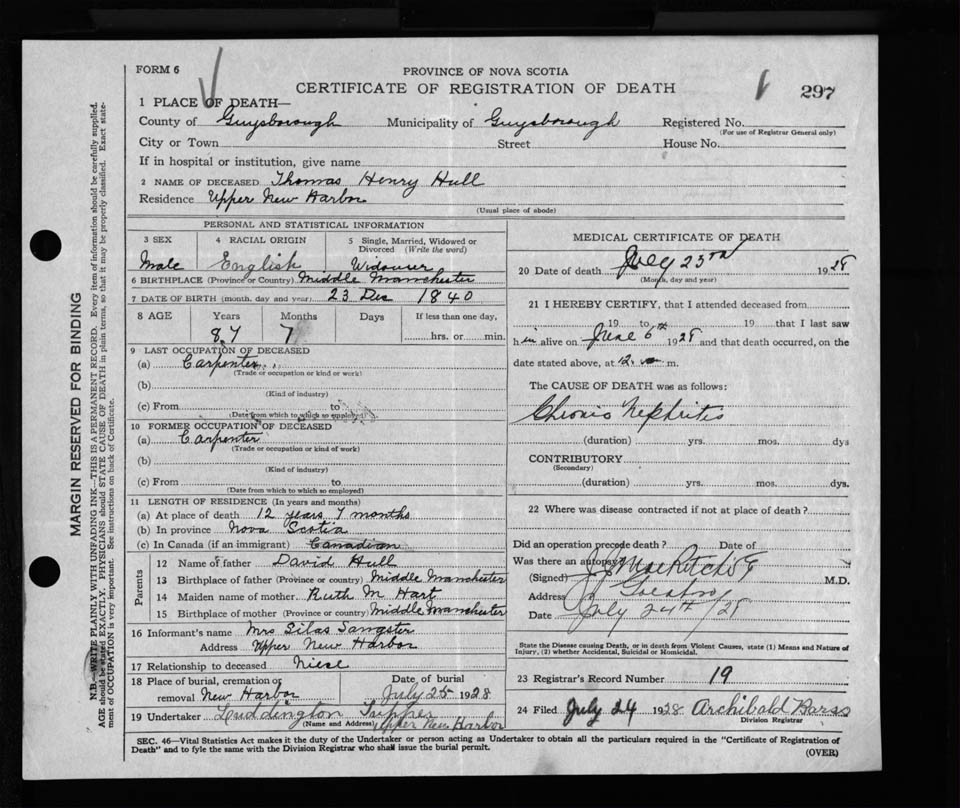 FORM 6
PROVINCE OF NOVA SCOTIA
CERTIFICATE OF REGISTRATION OF DEATH
297
1 PLACE OF DEATH—
County of Guysborough Municipality of Guysborough Registered No.
(For use of Registrar General only)
City or Town Street House No.
If in hospital or institution, give name
2 NAME OF DECEASED Thomas Henry Hull
Residence Upper New Harbor
(Usual place of abode)
PERSONAL AND STATISTICAL INFORMATION
3 SEX 4 RACIAL ORIGIN 5 Single, Married, Widowed or Divorced (Write the word)
Male English Widower
6 BIRTHPLACE (Province or Country) Middle Manchester
7 DATE OF BIRTH (month, day and year) 23 Dec 1840
8 AGE Years Months Days If less than one day,
87 7 hrs. or min.
9 LAST OCCUPATION OF DECEASED
(a) Carpenter
(Trade or occupation or kind or work)
(b)
(Kind of industry)
(c) From to
(Date from which to which so employed)
10 FORMER OCCUPATION OF DECEASED
(a) Carpenter
(Trade or occupation or kind of work)
(b)
(Kind of industry)
(c) From to
(Date from which to which so employed)
11 LENGTH OF RESIDENCE (In years and months)
(a) At place of death 12 years 7 months
(b) In province Nova Scotia
(c) In Canada (if an immigrant) Canadian
Parents
12 Name of father David Hull
13 Birthplace of father (Province or country) Middle Manchester
14 Maiden name of mother Ruth M Hart
15 Birthplace of mother (Province or country) Middle Manchester
16 Informant's name Mrs Silas Sangster
Address Upper New Harbor
17 Relationship to deceased Niese
18 Place of burial, cremation or removal New Harbor
Date of burial July 25 1928
19 Undertaker Luddington
(Name and Address) Upper New Harbor
MEDICAL CERTIFICATE OF DEATH
20 Date of death July 23rd 1928
(Month, day and year)
21 I HEREBY CERTIFY, that I attended deceased from
19 to 19 that I last saw
him alive on June 6th 1928 and that death occurred, on the
date stated above, at 12 m.
The CAUSE OF DEATH was as follows:
Chronic Nephritis
(duration) yrs. mos. dys
CONTRIBUTORY
(Secondary)
(duration) yrs. mos. dys.
22 Where was disease contracted if not at place of death?
Did an operation precede death? Date of
Was there an autopsy?
(Signed) M.D.
Address
Date July 24th/28
State the Disease causing Death, or in death from Violent Causes, state (1) Means and Nature of Injury, (2) whether Accidental, Suicidal or Homicidal.
23 Registrar's Record Number 19
24 Filed July 24 1928 Archibald Barss
Division Registrar
SEC. 46—Vital Statistics Act makes it the duty of the Undertaker or person acting as Undertaker to obtain all the particulars required in the "Certificate of Registration of
Death" and to fyle the same with the Division Registrar who shall issue the burial permit.
(OVER)
MARGIN RESERVED FOR BINDING
N.B.—WRITE PLAINLY WITH UNFADING INK—THIS IS A PERMANENT RECORD. Every item of information should be carefully supplied.
AGE should be stated EXACTLY. PHYSICIANS should STATE CAUSE OF DEATH in plain terms, so that it may be properly classified. Exact state-
ment of OCCUPATION is very important. See instructions on back of Certificate.